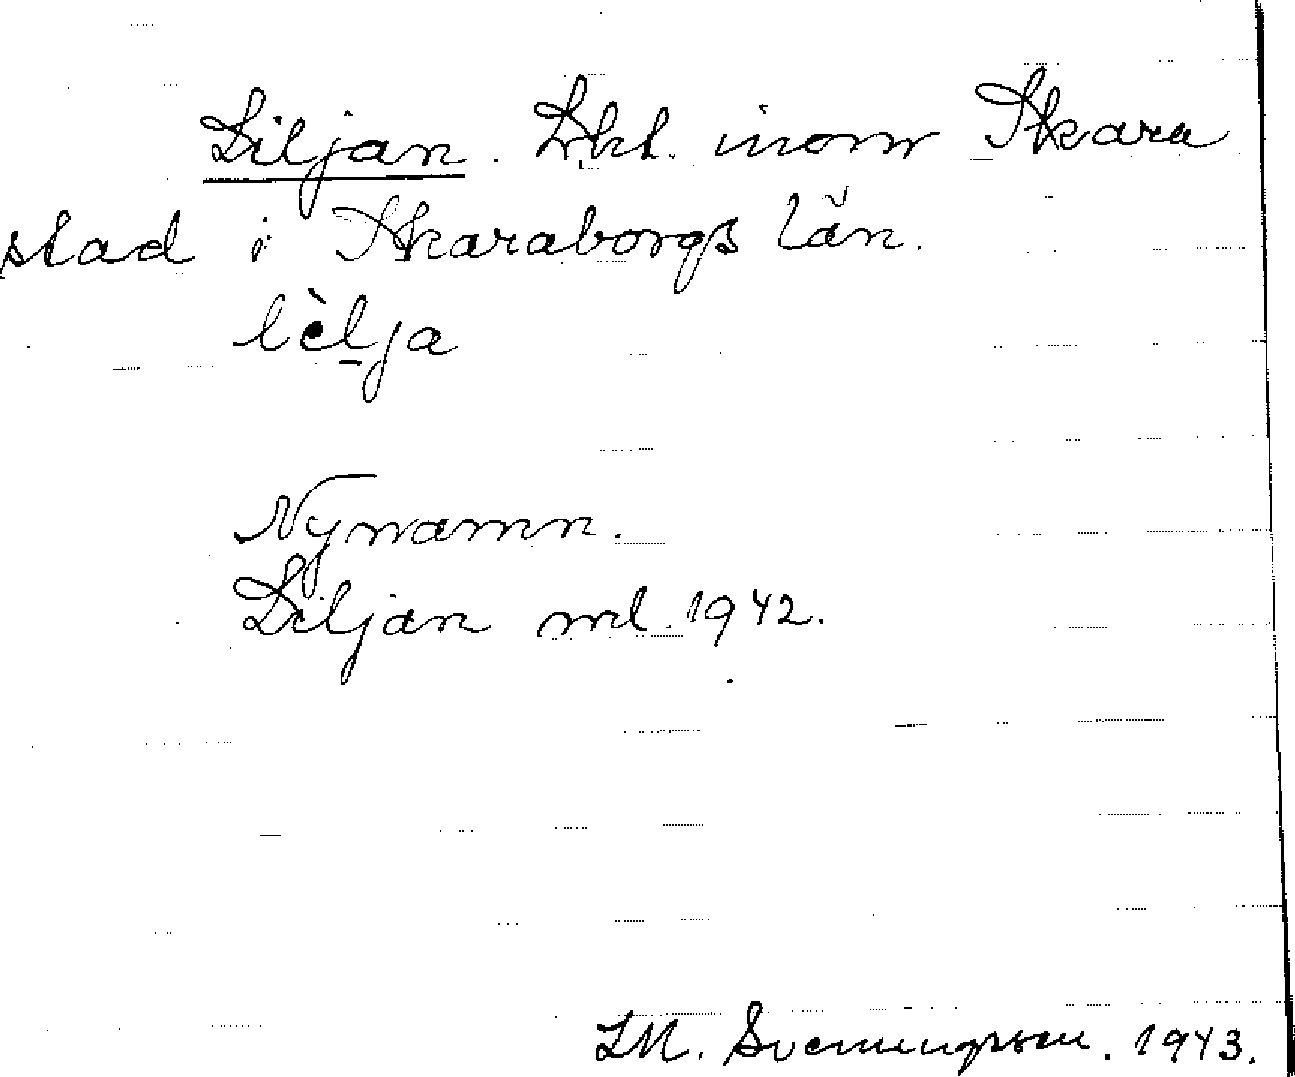 Liljan. Lht. inom Skara
stad i Skaraborgs län.
lèlja
Nynamn.
Liljan ml. 1942.
LM. Svenningson. 1943.